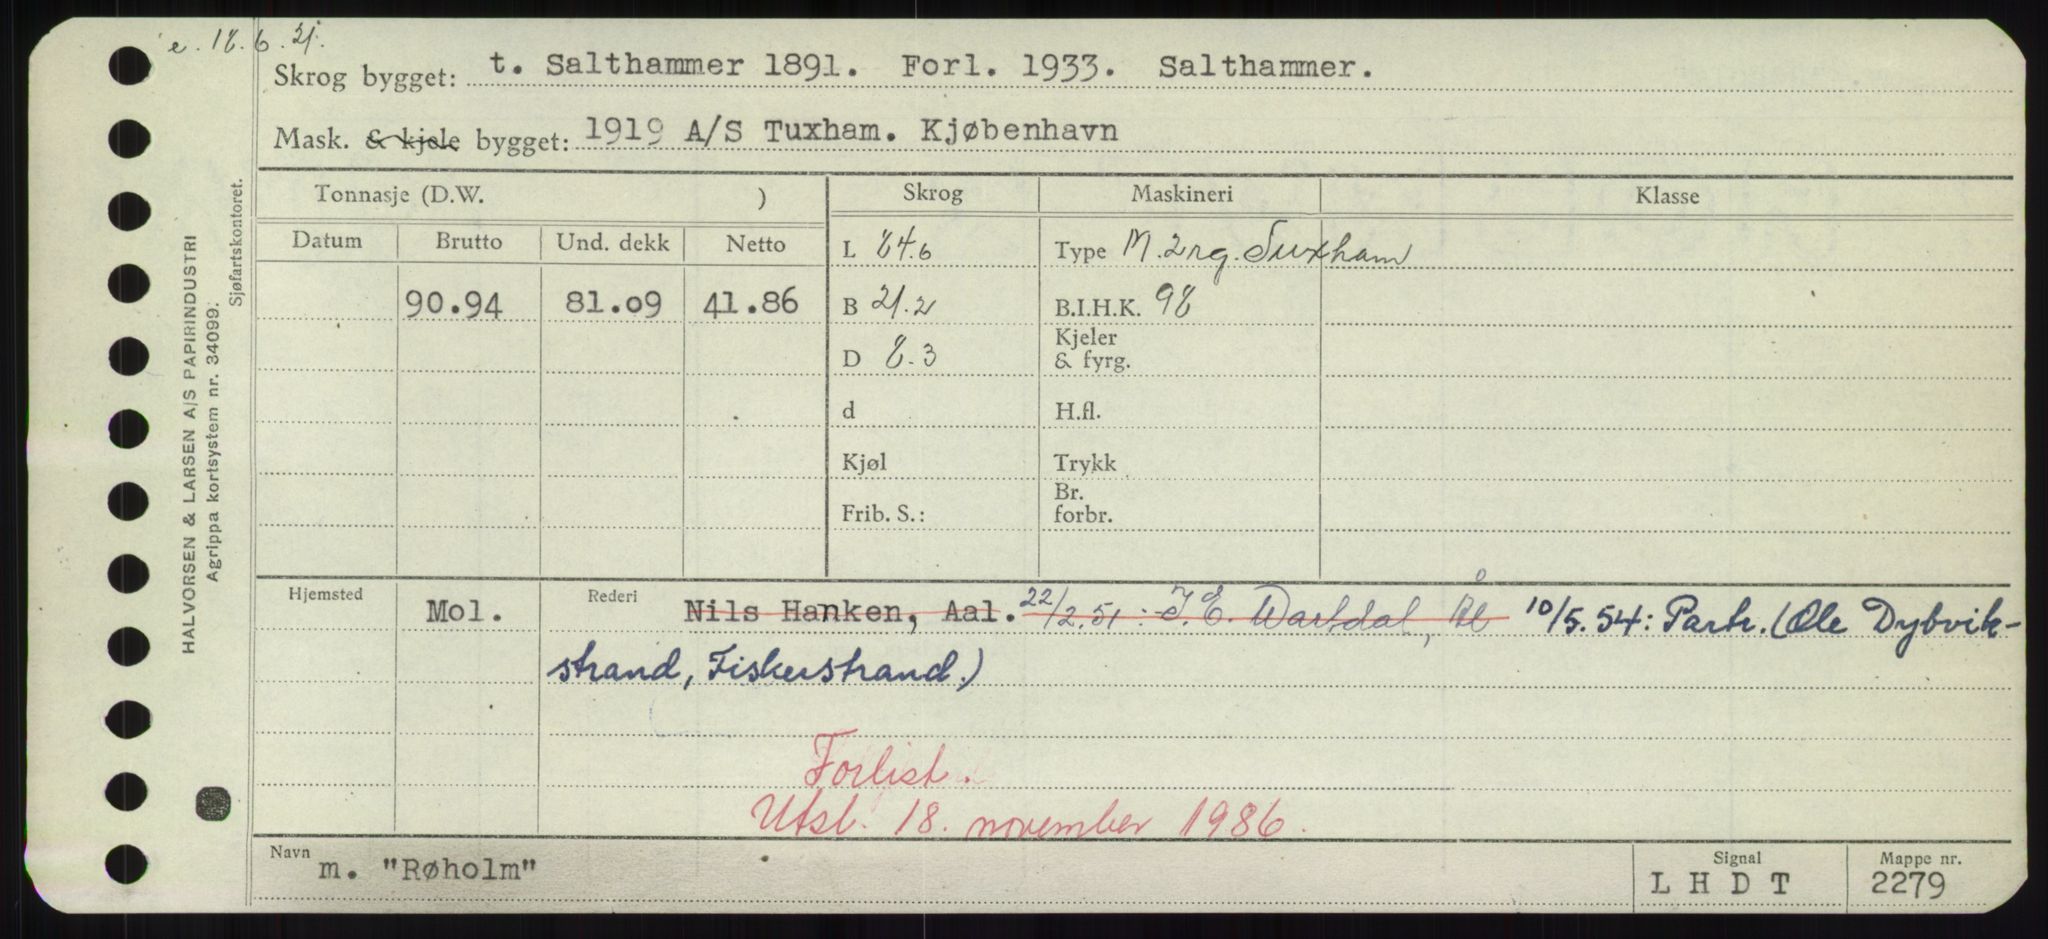 e. 18.6.21.
Skrog bygget: t. Salthammer 1891. Forl. 1933. Salthammer.
Mask. & kjele bygget: 1919 A/S Tuxham. Kjøbenhavn
HALVORSEN & LARSEN A/S PAPIRINDUSTRI
Agrippa kortsystem nr. 34099.
Sjøfartskontoret.
Tonnasje (D.W. ) Skrog Maskineri Klasse
Datum Brutto Und. dekk Netto L 84.6 Type M. 2 rg. Tuxham
90.94 81.09 41.86 B 21.2 B.I.H.K. 98
D 8.3 Kjeler & fyrg.
d H.fl.
Kjøl Trykk
Frib. S.: Br. forbr.
Hjemsted Mol. Rederi Nils Hanken, Aal. 22/2.51: I. E. Wartdal, Ål 10/5.54: Partr. (Ole Dybvik-
strand, Fiskerstrand.)
Forlist.
Utsl. 18. november 1986.
Navn m. "Røholm" Signal LHDT Mappe nr. 2279